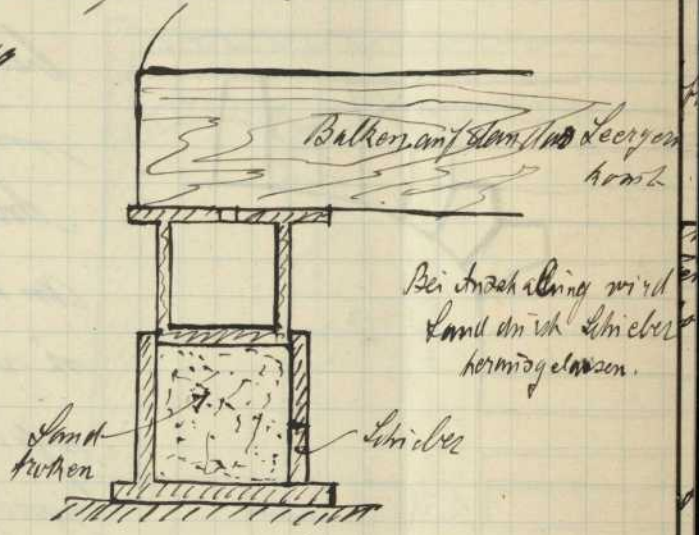 Balken auf dem das Leergerü
kommt
Bei Ausschalung wird
Sand durch Schieber
herausgelassen.
Sand
troken
Schieber